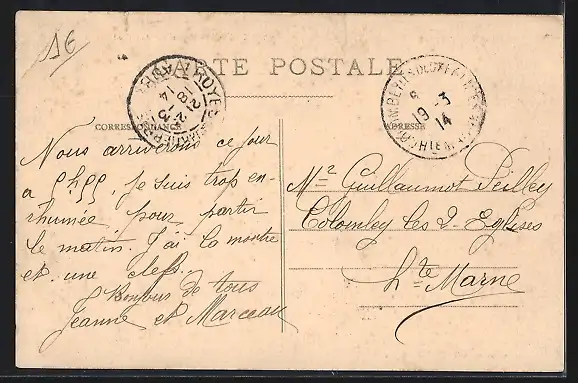 1€
CARTE POSTALE
TROYES AUBE
CORRESPONDANCE
ADRESSE
19-3
14
Nous arriverons ce jour
a 5h55. Je suis trop en-
rhumée pour partir
le matin. J'ai la montre
et une clefs.
Bonjour de tous
Jeanne et Marceau
Mr Guillaumot Peilley
Colombey les 2 Eglises
Hte Marne